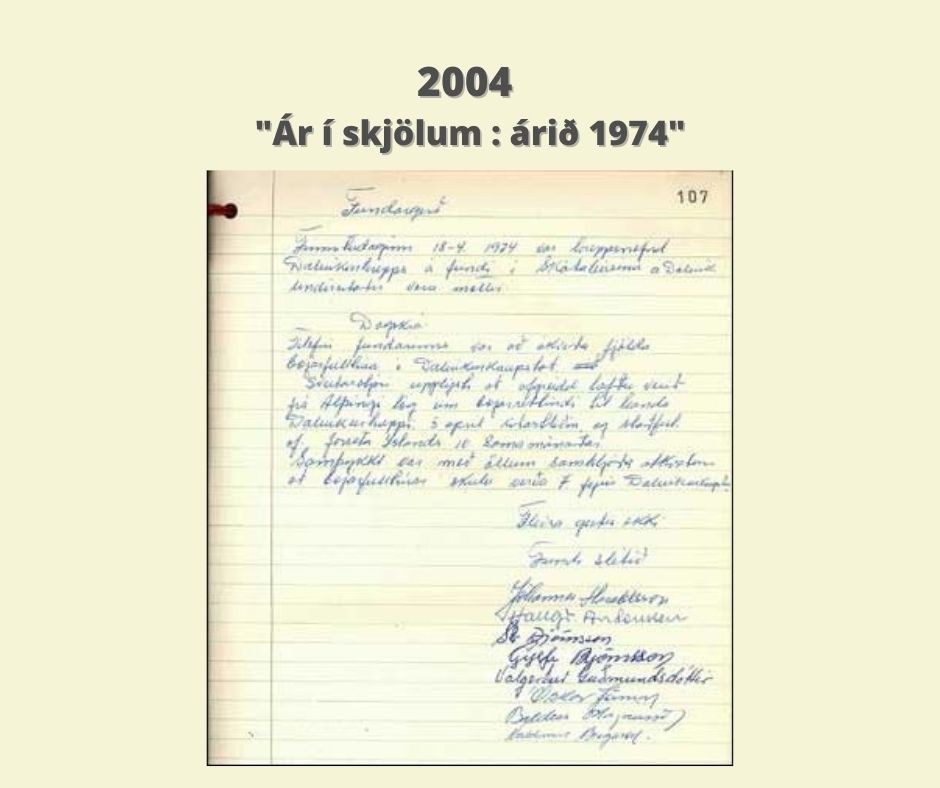 2004
"Ár í skjölum : árið 1974"
107
Fundargerð
Fimmtudaginn 18-4 1974 var hreppsnefnd
Dalvíkurhrepps á fundi í á Dalvík
vera mættir
Dagskrá
Tilefni fundarins var að ákveða fjölda
bæjarfulltrúa í Dalvíkurkaupstað
Sveitarstjóri upplýsti að afgreidd hefðu verið
frá Alþingi lög um bæjarréttindi til handa
Dalvíkurhreppi 5 apríl og staðfest
af forseta Íslands 10 sama mánaðar
Samþykkt var með öllum samhljóða atkvæðum
að bæjarfulltrúar skulu verða 7 fyrir
Fleira gerðist ekki
Fundi slitið
Jóhannes
Björnsson
Gylfi Björnsson
Valgerður Guðmundsdóttir
Óskar Jónsson